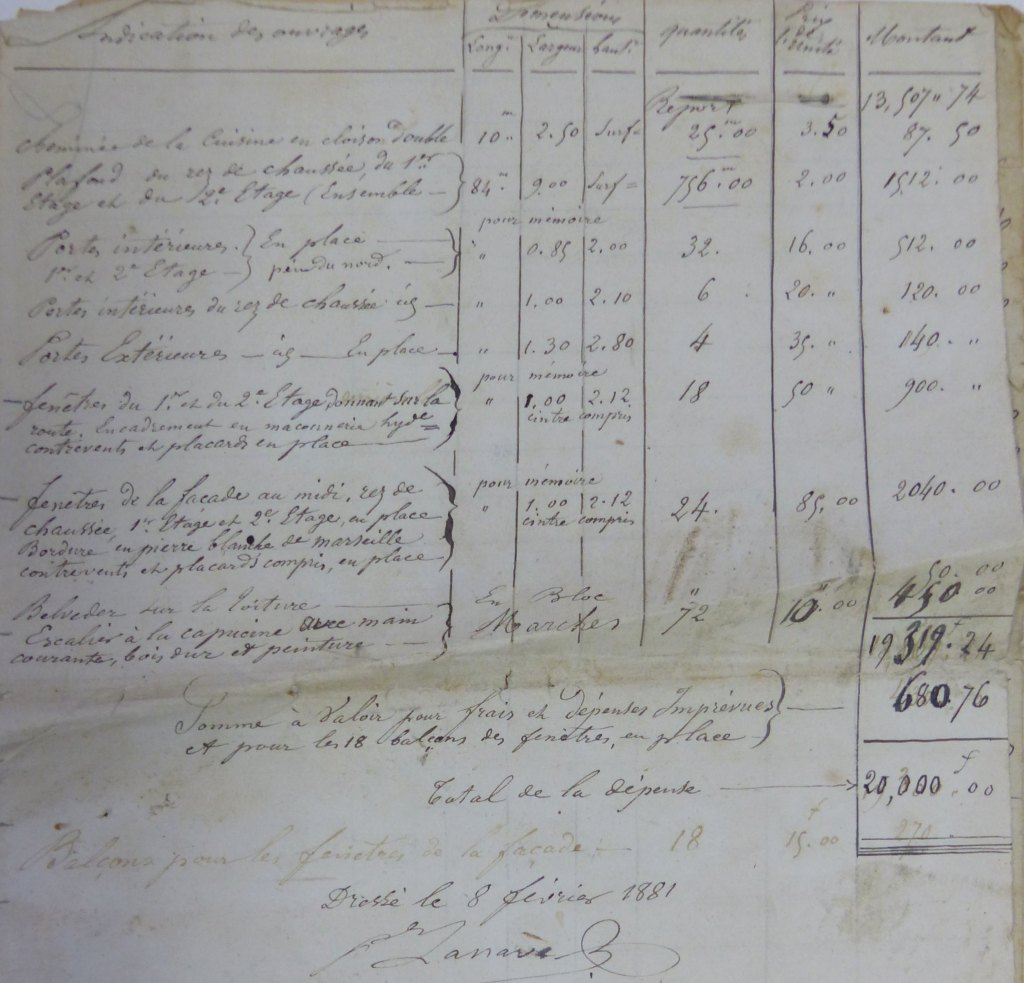 Indication des ouvrages Dimensions quantités Prix de l'unité Montant
Longr Largeur hautr
Report 13,507 " 74
Cheminée de la Cuisine en cloison double 10m " 2.50 Surf= 25.m00 3.50 87. 50
Plafond du rez de chaussée, du 1er
Etage et du 2e Etage (Ensemble — 84m. 9.00 Surf= 756.m00 2.00 1512. 00
pour mémoire
Portes intérieures. En place " 0.85 2.00 32. 16. 00 512. 00
1er et 2e Etage — du nord.
Portes intérieures du rez de chaussée — " 1.00 2.10 6 20. " 120. 00
Portes Extérieures — En place — " 1.30 2.80 4 35. " 140. "
pour mémoire
fenêtres du 1er et du 2e Etage donnant sur la " 1.00 2.12 18 50 " 900. "
route. Encadrement en maçonnerie hyde= cintre compris
contrevents et placards en place
pour mémoire
fenêtres de la façade au midi, rez de " 1.00 2.12 24. 85. 00 2040. 00
chaussée, 1er Etage et 2e Etage, en place cintre compris
Bordure en pierre blanche de marseille
contrevents et placards compris, en place
Belveder sur la toiture En Bloc " " 50. 00
Escalier à la capucine avec main Marches 72 10. 00 450 00
courante, bois dur et peinture
19319f.24
Somme à Valoir pour frais et dépenses Imprévues — 680.76
et pour les 18 balcons des fenêtres, en place
Total de la dépense 20,000f.00
Balcons pour les fenêtres de la façade — 18 15f.00 270
Dressé le 8 février 1881